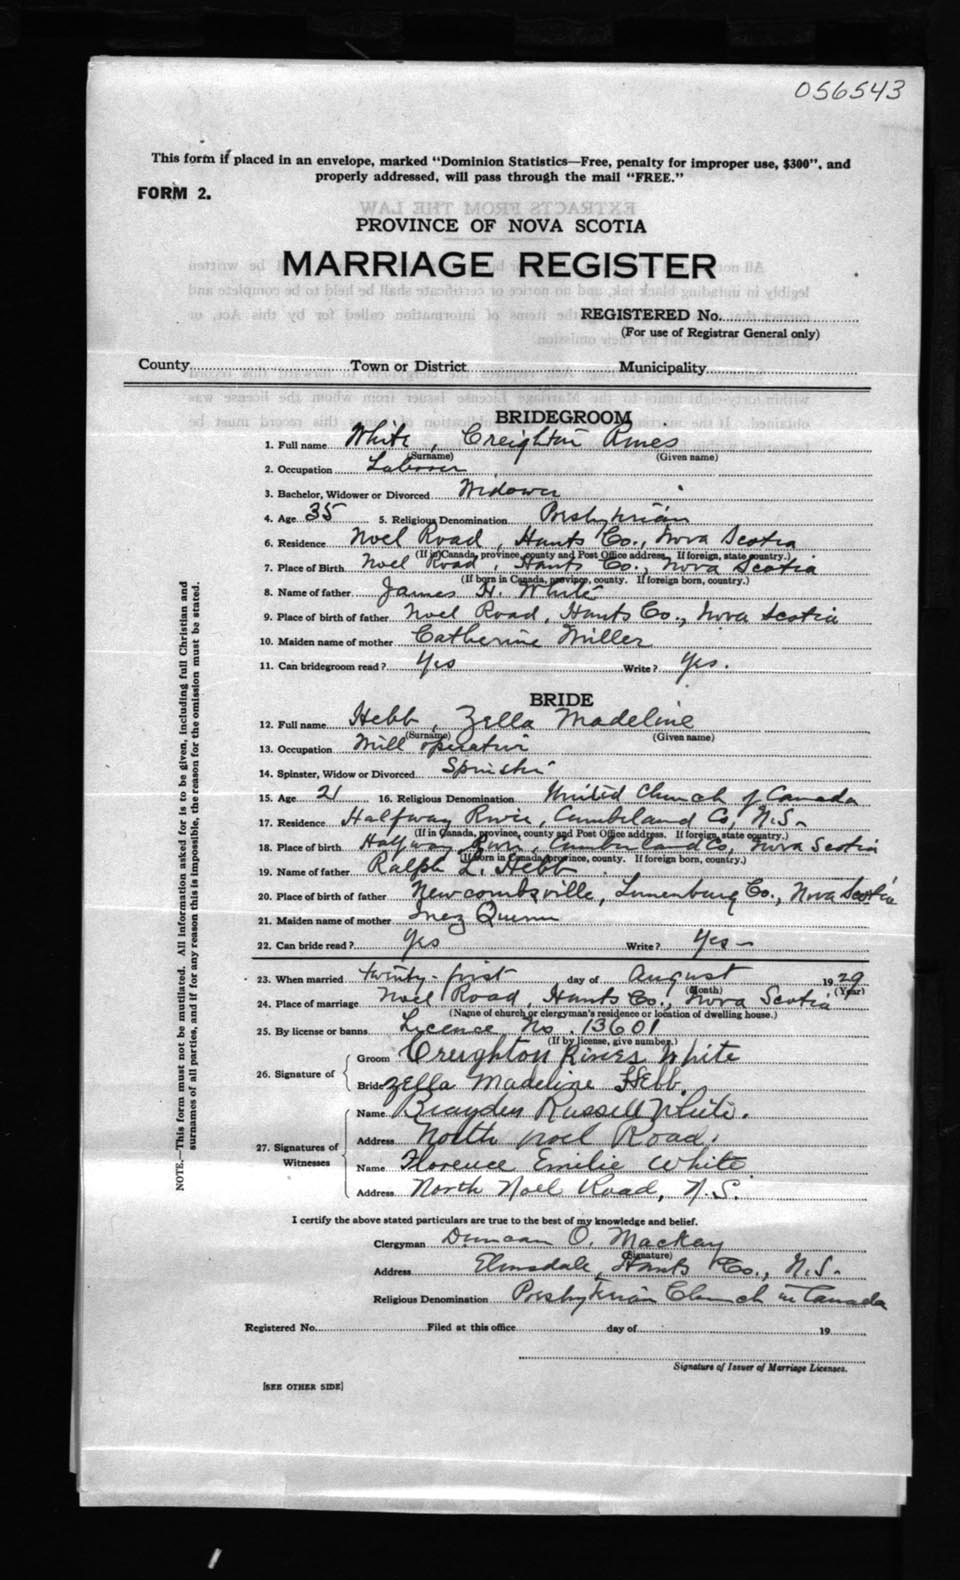 056543
This form if placed in an envelope, marked "Dominion Statistics—Free, penalty for improper use, $300", and
properly addressed, will pass through the mail "FREE."
FORM 2.
PROVINCE OF NOVA SCOTIA
MARRIAGE REGISTER
REGISTERED No.
(For use of Registrar General only)
County Town or District Municipality
BRIDEGROOM
1. Full name White, Creighton Rines
(Surname) (Given name)
2. Occupation Laborer
3. Bachelor, Widower or Divorced Widower
4. Age 35 5. Religious Denomination Presbyterian
6. Residence Noel Road, Hants Co., Nova Scotia
(If in Canada, province, county and Post Office address. If foreign, state country.)
7. Place of Birth Noel Road, Hants Co., Nova Scotia
(If born in Canada, province, county. If foreign born, country.)
8. Name of father James H. White
9. Place of birth of father Noel Road, Hants Co., Nova Scotia
10. Maiden name of mother Catherine Miller
11. Can bridegroom read? Yes Write? Yes.
BRIDE
12. Full name Hebb, Zella Madeline
(Surname) (Given name)
13. Occupation Mill operator
14. Spinster, Widow or Divorced Spinster
15. Age 21 16. Religious Denomination United Church of Canada
17. Residence Halfway River, Cumberland Co, N.S.
(If in Canada, province, county and Post Office address. If foreign, state country.)
18. Place of birth Halfway River, Cumberland Co, Nova Scotia
(If born in Canada, province, county. If foreign born, country.)
19. Name of father Ralph L. Hebb
20. Place of birth of father Newcombsville, Lunenburg Co., Nova Scotia
21. Maiden name of mother Inez Quinn
22. Can bride read? Yes Write? Yes
23. When married twenty-first day of August 1929
(Month) (Year)
24. Place of marriage Noel Road, Hants Co., Nova Scotia
(Name of church or clergyman's residence or location of dwelling house.)
25. By license or banns Licence No. 13601
(If by license, give number.)
26. Signature of Groom Creighton Rines White
Bride Zella Madeline Hebb.
27. Signatures of Witnesses Name Brayden Russell White.
Address North Noel Road.
Name Florence Emilie White
Address North Noel Road, N.S.
I certify the above stated particulars are true to the best of my knowledge and belief.
Clergyman Duncan O. Mackay
(Signature)
Address Elmsdale, Hants Co., N.S.
Religious Denomination Presbyterian Church in Canada
Registered No. Filed at this office day of 19
Signature of Issuer of Marriage Licenses.
[SEE OTHER SIDE]
NOTE.—This form must not be mutilated. All information asked for is to be given, including full Christian and
surnames of all parties, and if for any reason this is impossible, the reason for the omission must be stated.